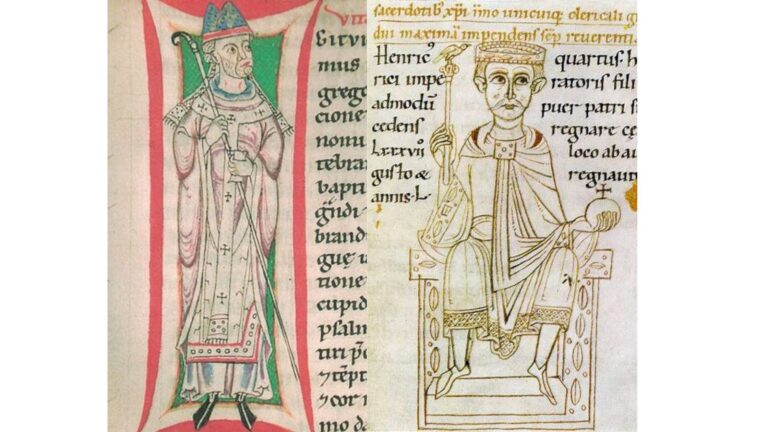 Vita
mus
grego
cione
nonu
tebra
bapti
brand
guę
tione
cupid
psalm
tiri
⁊ cor
mo da
sacerdotib; xp̄i. immo unicuiq; clericali g
dui maximā impendens sēp reuerenti
Henricꝰ quartus h
rici impe ratoris fili
admodū puer patri s
cedens regnare cę
Lxxxvii loco ab au
gusto & regnauit
annis. L